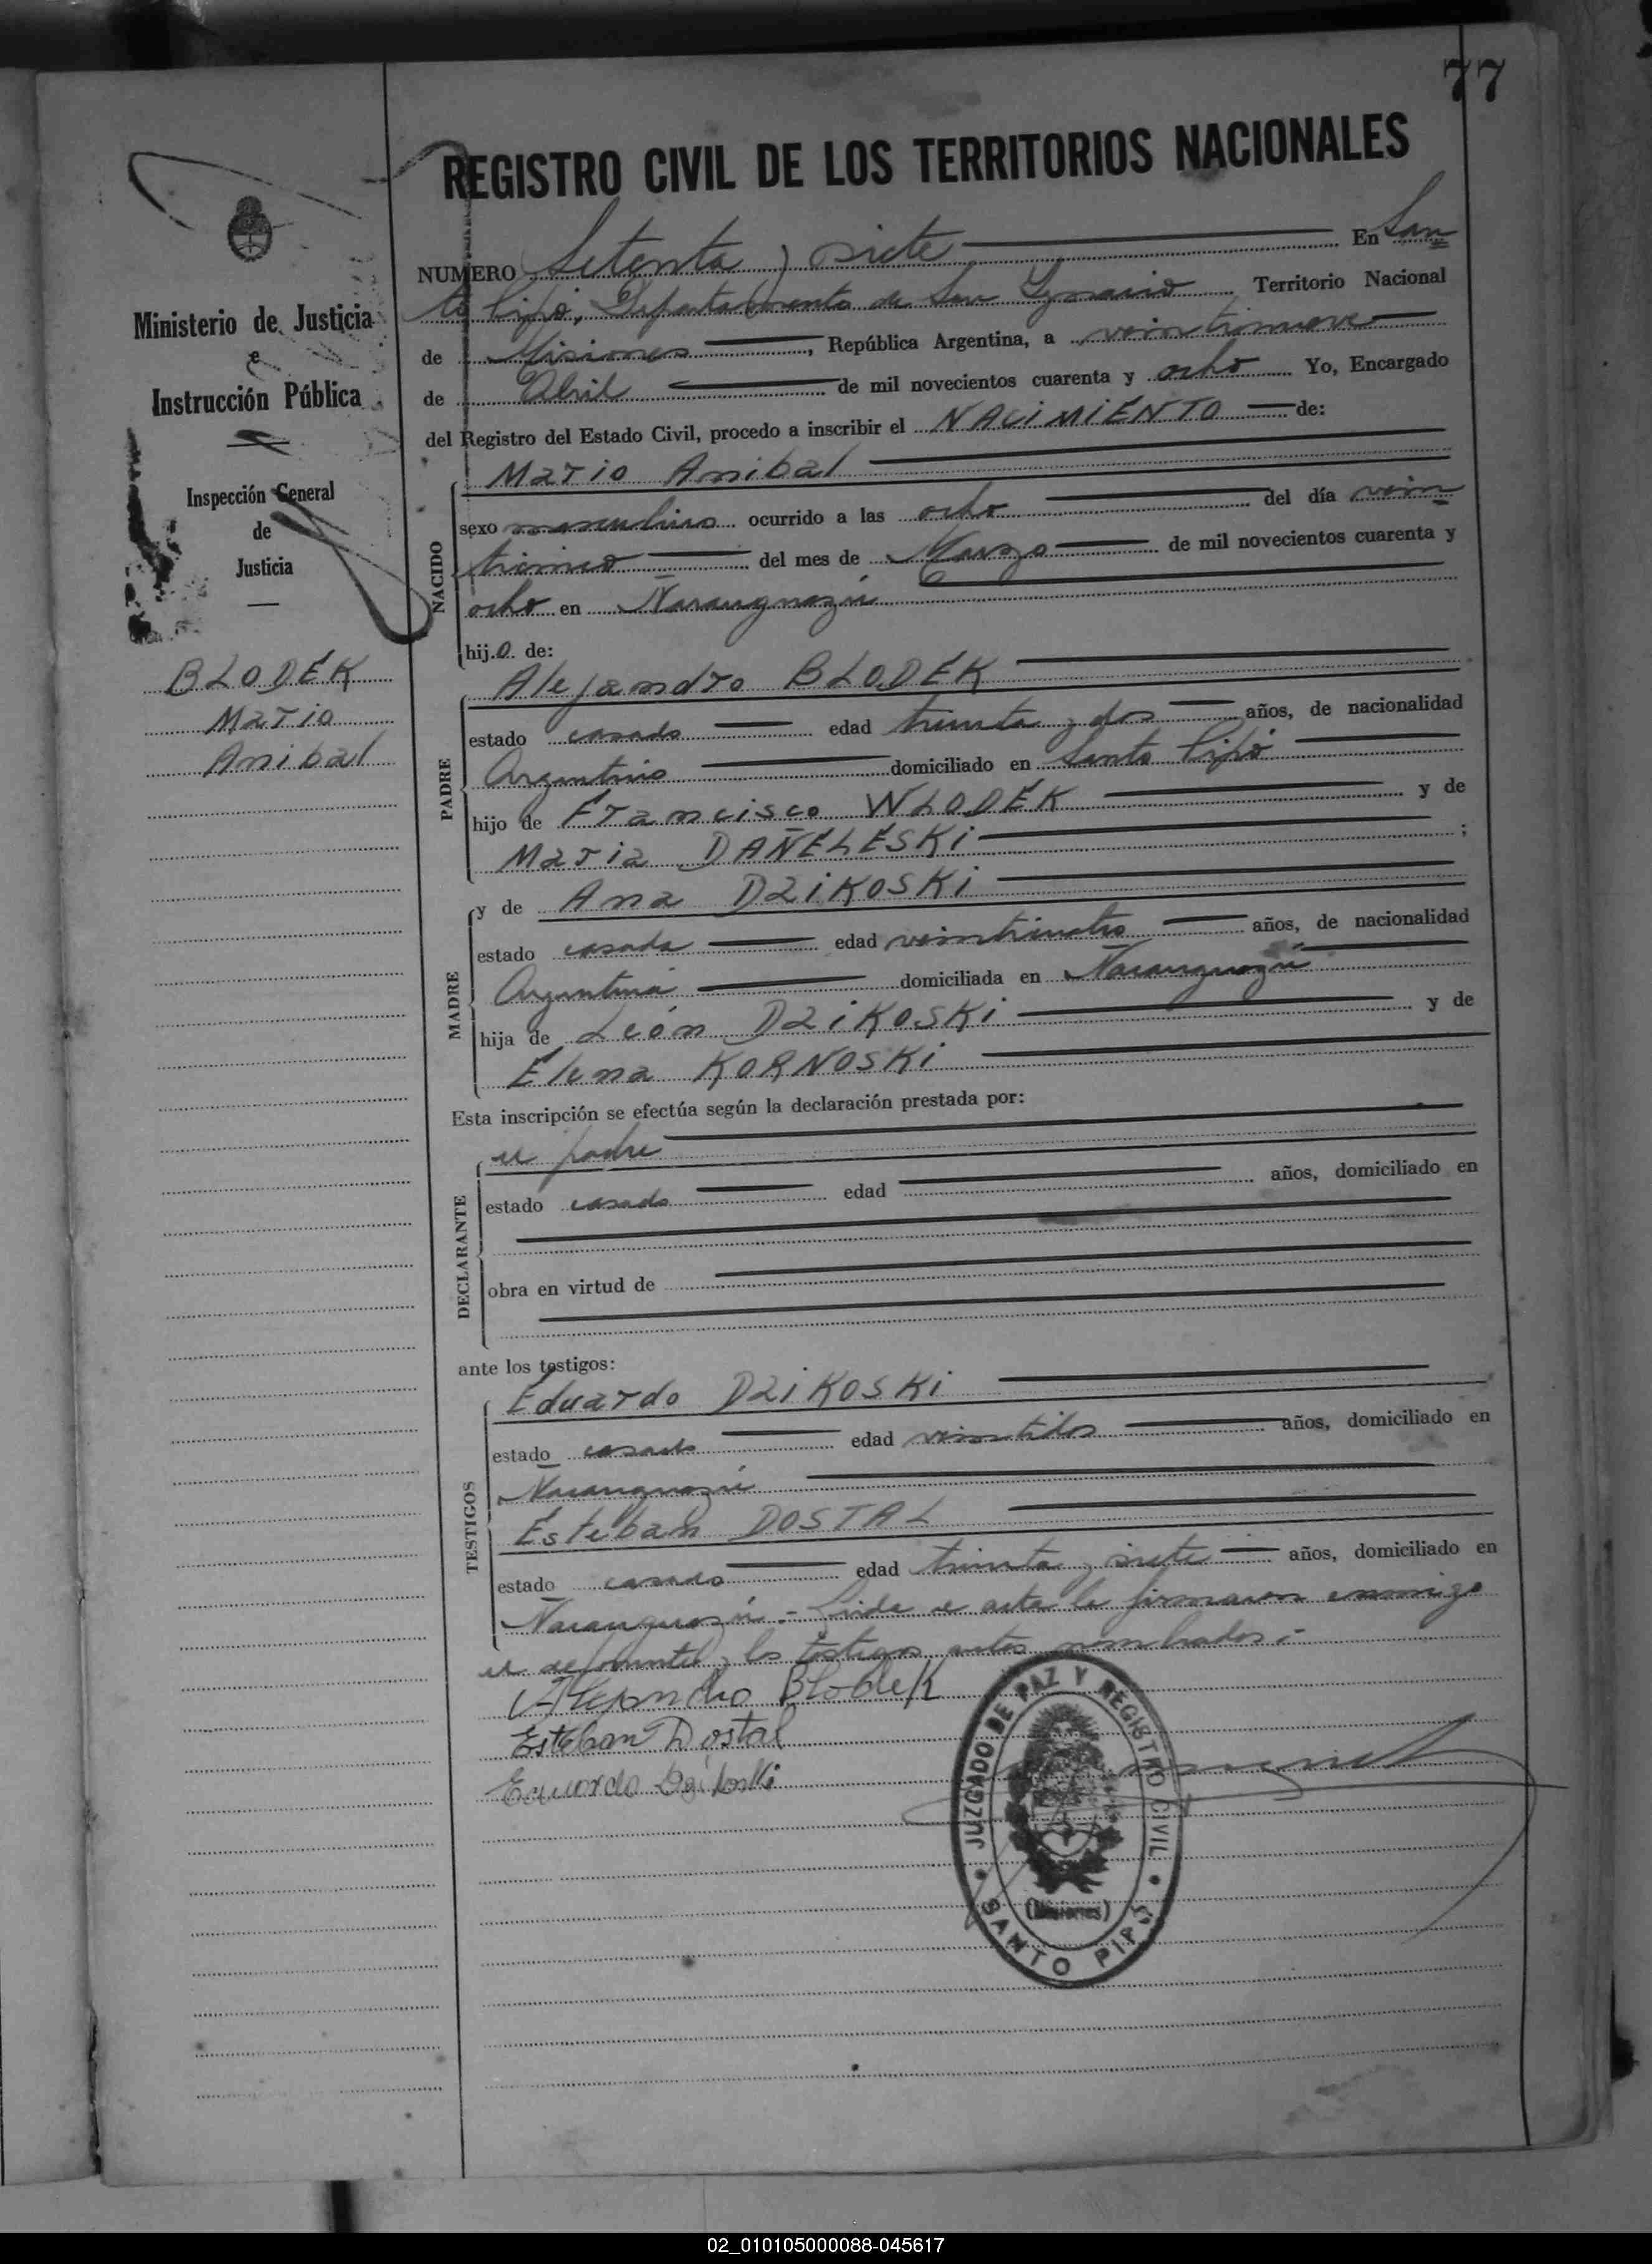 77
REGISTRO CIVIL DE LOS TERRITORIOS NACIONALES
Ministerio de Justicia
e
Instrucción Pública
Inspección General
de
Justicia
BLODEK
Mario
Anibal
NUMERO Setenta y siete En San
to Pipó, Departamento de San Ignacio Territorio Nacional
de Misiones, República Argentina, a veintinueve
de Abril de mil novecientos cuarenta y ocho Yo, Encargado
del Registro del Estado Civil, procedo a inscribir el NACIMIENTO de:
NACIDO
Mario Anibal
sexo masculino ocurrido a las ocho del día vein
ticinco del mes de Marzo de mil novecientos cuarenta y
ocho en Ñaranguazú
hij.o. de:
PADRE
Alejandro BLODEK
estado casado edad treinta y dos años, de nacionalidad
Argentino domiciliado en Santo Pipó
hijo de Francisco WLODEK y de
Maria DAÑELESKi ;
MADRE
y de Ana DZiKOSKi
estado casada edad veinticuatro años, de nacionalidad
Argentina domiciliada en Ñaranguazú
hija de León DZiKOSKi y de
Elena KORNOSKi
Esta inscripción se efectúa según la declaración prestada por:
DECLARANTE
el padre
estado casado edad años, domiciliado en
obra en virtud de
ante los testigos:
TESTIGOS
Eduardo DZiKOSKi
estado casado edad veintidos años, domiciliado en
Ñaranguazú
Esteban DOSTAL
estado casado edad treinta y siete años, domiciliado en
Ñaranguazú.- Leida el acta la firmaron conmigo
el deponente y los testigos antes nombrados.-
Alejandro Blodek
Esteban Dostal
Eduardo Dzikoski
JUZGADO DE PAZ Y REGISTRO CIVIL
(Misiones)
SANTO PIPÓ
02_010105000088-045617